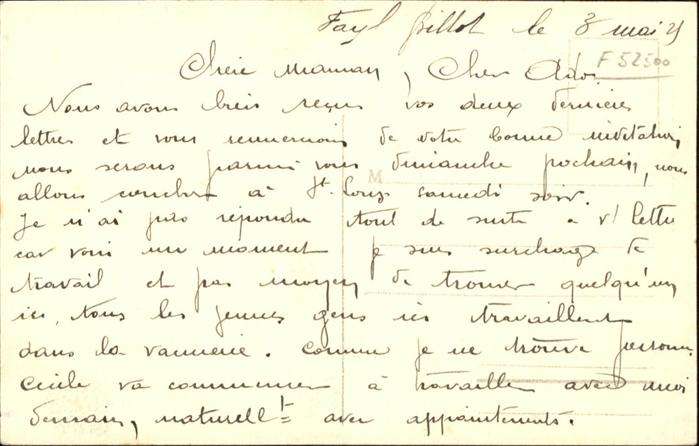 Fayl Billot le 3 mai 21
F 52500
Cheie Maman, Cher Ado.
Nous avons bien reçu vos deux dernières
lettres et vous remercions de votre bonne invitation,
nous serons parmi vous dimanche pochain, nous
M
allons coucher à St. Louis samedi soir.
Je n'ai pas répondu tout de suite a v/ lettre
car voici un moment je suis surchargé de
travail et pas moyen de trouver quelqu'un
ici, tous les jeunes gens ici travaillent
dans la vannerie. Comme je ne trouve personne
Cécile va commencer à travailler avec moi
demain, naturellt avec appointements.